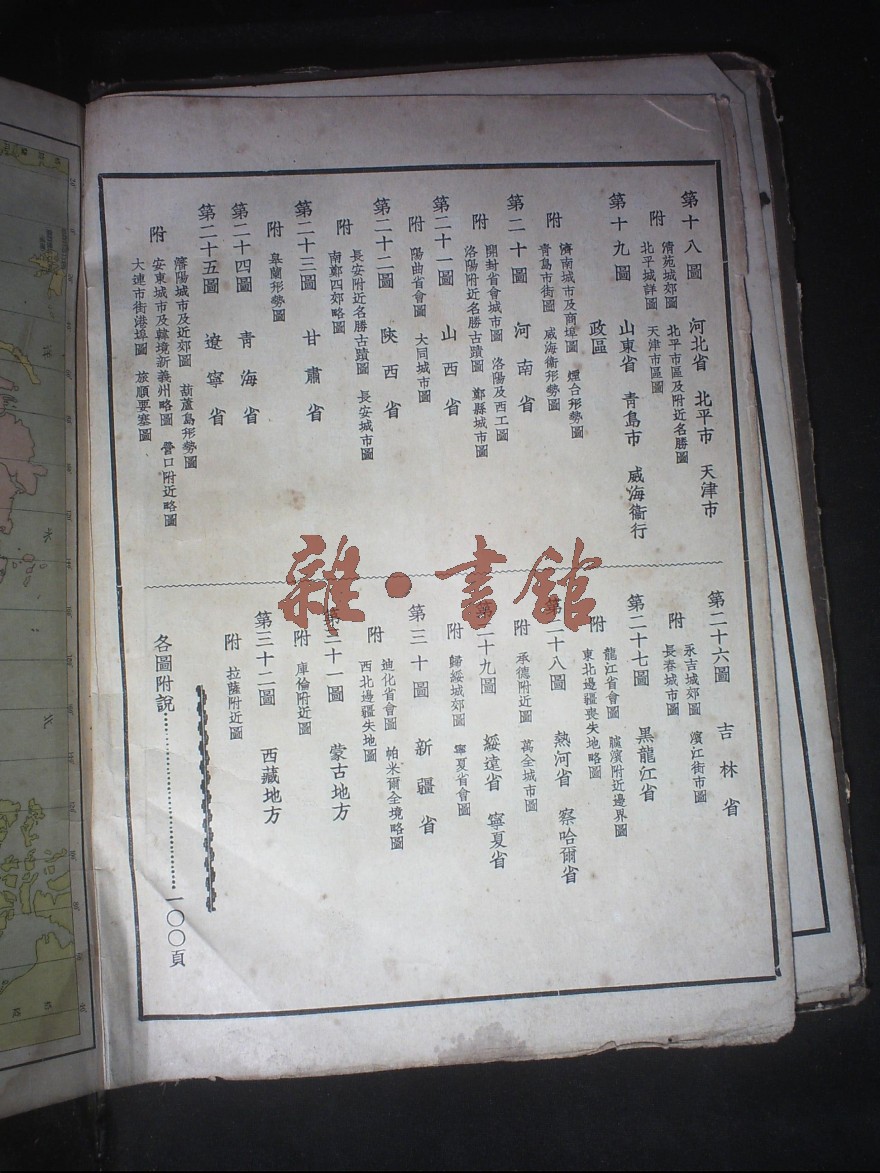 第十八圖　河北省　北平市　天津市
附　清苑城郊圖　北平市區及附近名勝圖
北平城詳圖　天津市區圖
第十九圖　山東省　青島市　威海衞行
政區
附　濟南城市及商埠圖　煙台形勢圖
青島市街圖　威海衞形勢圖
第二十圖　河南省
附　開封省會城市圖　洛陽及西工圖
洛陽附近名勝古蹟圖　鄭縣城市圖
第二十一圖　山西省
附　陽曲省會圖　大同城市圖
第二十二圖　陝西省
附　長安附近名勝古蹟圖　長安城市圖
南鄭四郊略圖
第二十三圖　甘肅省
附　皋蘭形勢圖
第二十四圖　青海省
第二十五圖　遼寧省
附　瀋陽城市及近郊圖　葫蘆島形勢圖
安東城市及韓境新義州略圖　營口附近略圖
大連市街港埠圖　旅順要塞圖
第二十六圖　吉林省
附　永吉城郊圖　濱江街市圖
長春城市圖
第二十七圖　黑龍江省
附　龍江省會圖　臚濱附近邊界圖
東北邊疆喪失地略圖
第二十八圖　熱河省　察哈爾省
附　承德附近圖　萬全城市圖
第二十九圖　綏遠省　寧夏省
附　歸綏城郊圖　寧夏省會圖
第三十圖　新疆省
附　迪化省會圖　帕米爾全境略圖
西北邊疆失地圖
第三十一圖　蒙古地方
附　庫倫附近圖
第三十二圖　西藏地方
附　拉薩附近圖
各圖附說………………一〇〇頁
雜·書館